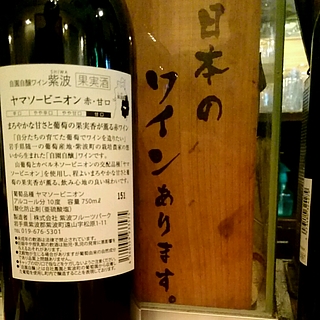 自園自醸ワイン 紫波 果実酒
ヤマソービニオン 赤・甘口
まろやかな甘さと葡萄の果実香が薫る赤ワイン
「自分たちの育てた葡萄でワインを造りたい」
岩手県随一の葡萄産地・紫波町の栽培農家の想
いから生まれた「自園自醸」ワインです。
山葡萄とカベルネソービニオンの交配品種「ヤマ
ソービニオン」を使用し、程よいまろやかな甘さと
果実香が薫る、飲み心地の良い味わいです。
葡萄品種 ヤマソービニオン
アルコール分 10度 容量 750ml
酸化防止剤(亜硫酸塩)
製造者:株式会社 紫波フルーツパーク
岩手県紫波郡紫波町遠山字松原1-11
019-676-5301
151
日本の
ワインあります。